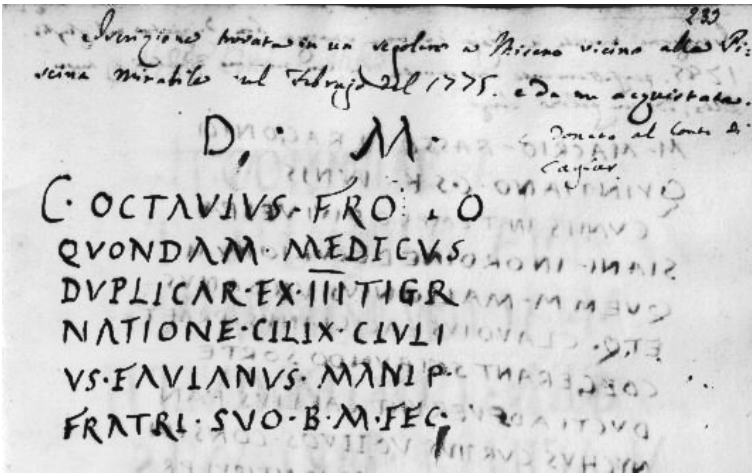 233
Iscrizione trovata in un sepolcro a Miseno vicino alla Pi:
scina mirabile nel Febrajo del 1775. e da me acquistata.
D, : M.
e Donata al Conte di
C. OCTAVIVS. FRO . . O
QVONDAM. MEDICVS
DVPLICAR. EX. III TIGR
NATIONE. CILIX. CIVLI
VS. FAVIANVS. MANIP.
FRATRI. SVO. B. M. FEC,